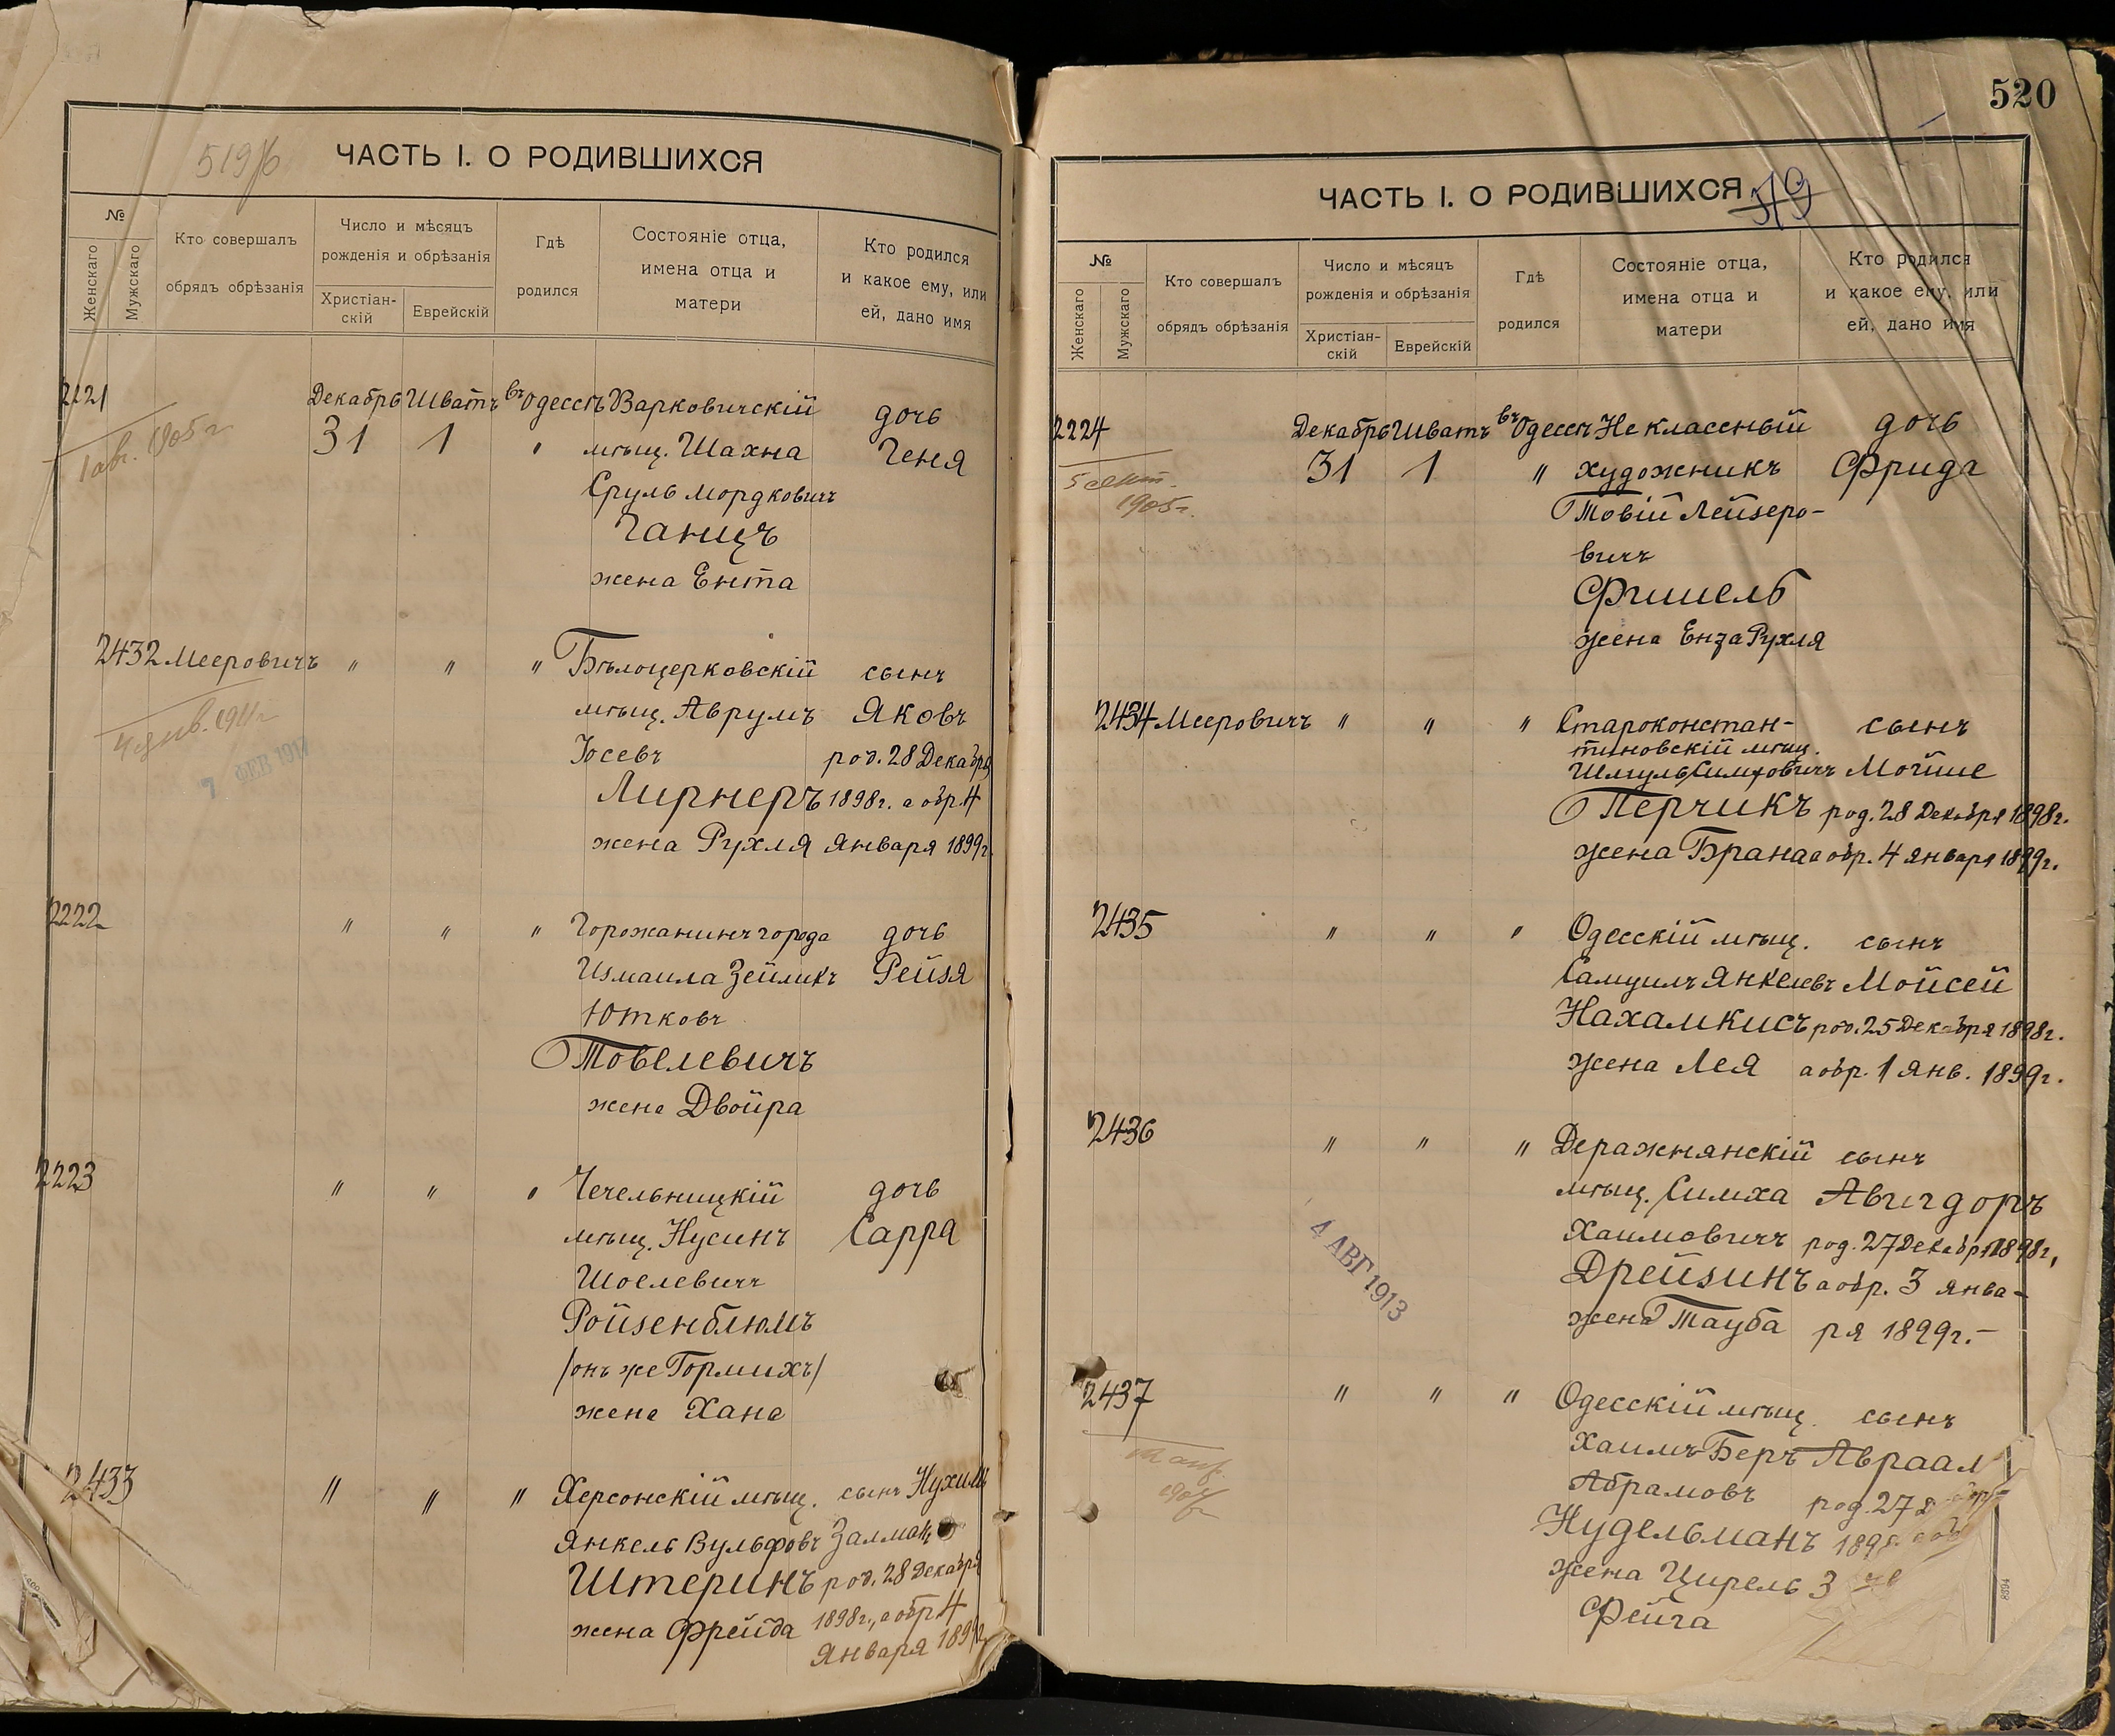 519/б
ЧАСТЬ I. О РОДИВШИХСЯ
№
Женскаго
Мужскаго
Кто совершалъ
обрядъ обрѣзанія
Число и мѣсяцъ
рожденія и обрѣзанія
Христіан-
скій
Еврейскій
Гдѣ
родился
Состояніе отца,
имена отца и
матери
Кто родился
и какое ему, или
ей, дано имя
2221 Декабрь Шватъ въ Одессѣ Варковичскій дочь
1 авг. 1905 г 31 1 " мѣщ. Шахна Геня
Сруль Мордковичъ
Ганицъ
жена Ента
2432 Мееровичъ " " " Бѣлоцерковскій сынъ
мѣщ. Аврумъ Яковъ
4 янв. 1911 г
Іосевъ род. 28 Декабря
7 ФЕВ 1917
Лирнеръ 1898 г. а обр. 4
жена Рухля Января 1899 г.
2222 " " " Горожанинъ города дочь
Измаила Зейликъ Рейзя
Ютковъ
Товелевичъ
жена Двойра
2223 " " " Чечельницкій дочь
мѣщ. Нусинъ Сарра
Шоелевичъ
Ройзенблюмъ
/онъ же Гормихъ/
жена Хана
2433 " " " Херсонскій мѣщ. сынъ Нухимъ
Янкель Вульфовъ Залман
Штеринъ род. 28 Декабря
жена Фрейда 1898 г., а обр 4
Января 1899 г.
520
ЧАСТЬ I. О РОДИВШИХСЯ 519
№
Женскаго
Мужскаго
Кто совершалъ
обрядъ обрѣзанія
Число и мѣсяцъ
рожденія и обрѣзанія
Христіан-
скій
Еврейскій
Гдѣ
родился
Состояніе отца,
имена отца и
матери
Кто родился
и какое ему, или
ей, дано имя
2224 Декабрь Шватъ въ Одессѣ Не классный дочь
5 сент. 31 1 " художникъ Фрида
1905 г. Товій Лейзеро-
вичъ
Фишель
жена Енза Рухля
2434 Мееровичъ " " " Староконстан- сынъ
тиновскій мѣщ.
Шмуль Симховичъ Мойше
Перчикъ род. 28 Декабря 1898 г.
жена Брана а обр. 4 Января 1899 г.
2435 " " " Одесскій мѣщ. сынъ
Самуилъ Янкелевъ Мойсей
Нахамкисъ род. 25 Декабря 1898 г.
жена Лея а обр. 1 Янв. 1899 г.
2436 " " " Деражнянскій сынъ
мѣщ. Симха Авигдоръ
4 АВГ 1913
Хаимовичъ род. 27 Декабря 1898 г,
Дрейзинъ а обр. 3 Янва-
жена Тауба ря 1899 г.-
2437 " " " Одесскій мѣщ. сынъ
Хаимъ-Беръ Авраам
Абрамовъ род. 27
Нудельманъ 1898
жена Цирель 3
Фейга
8394